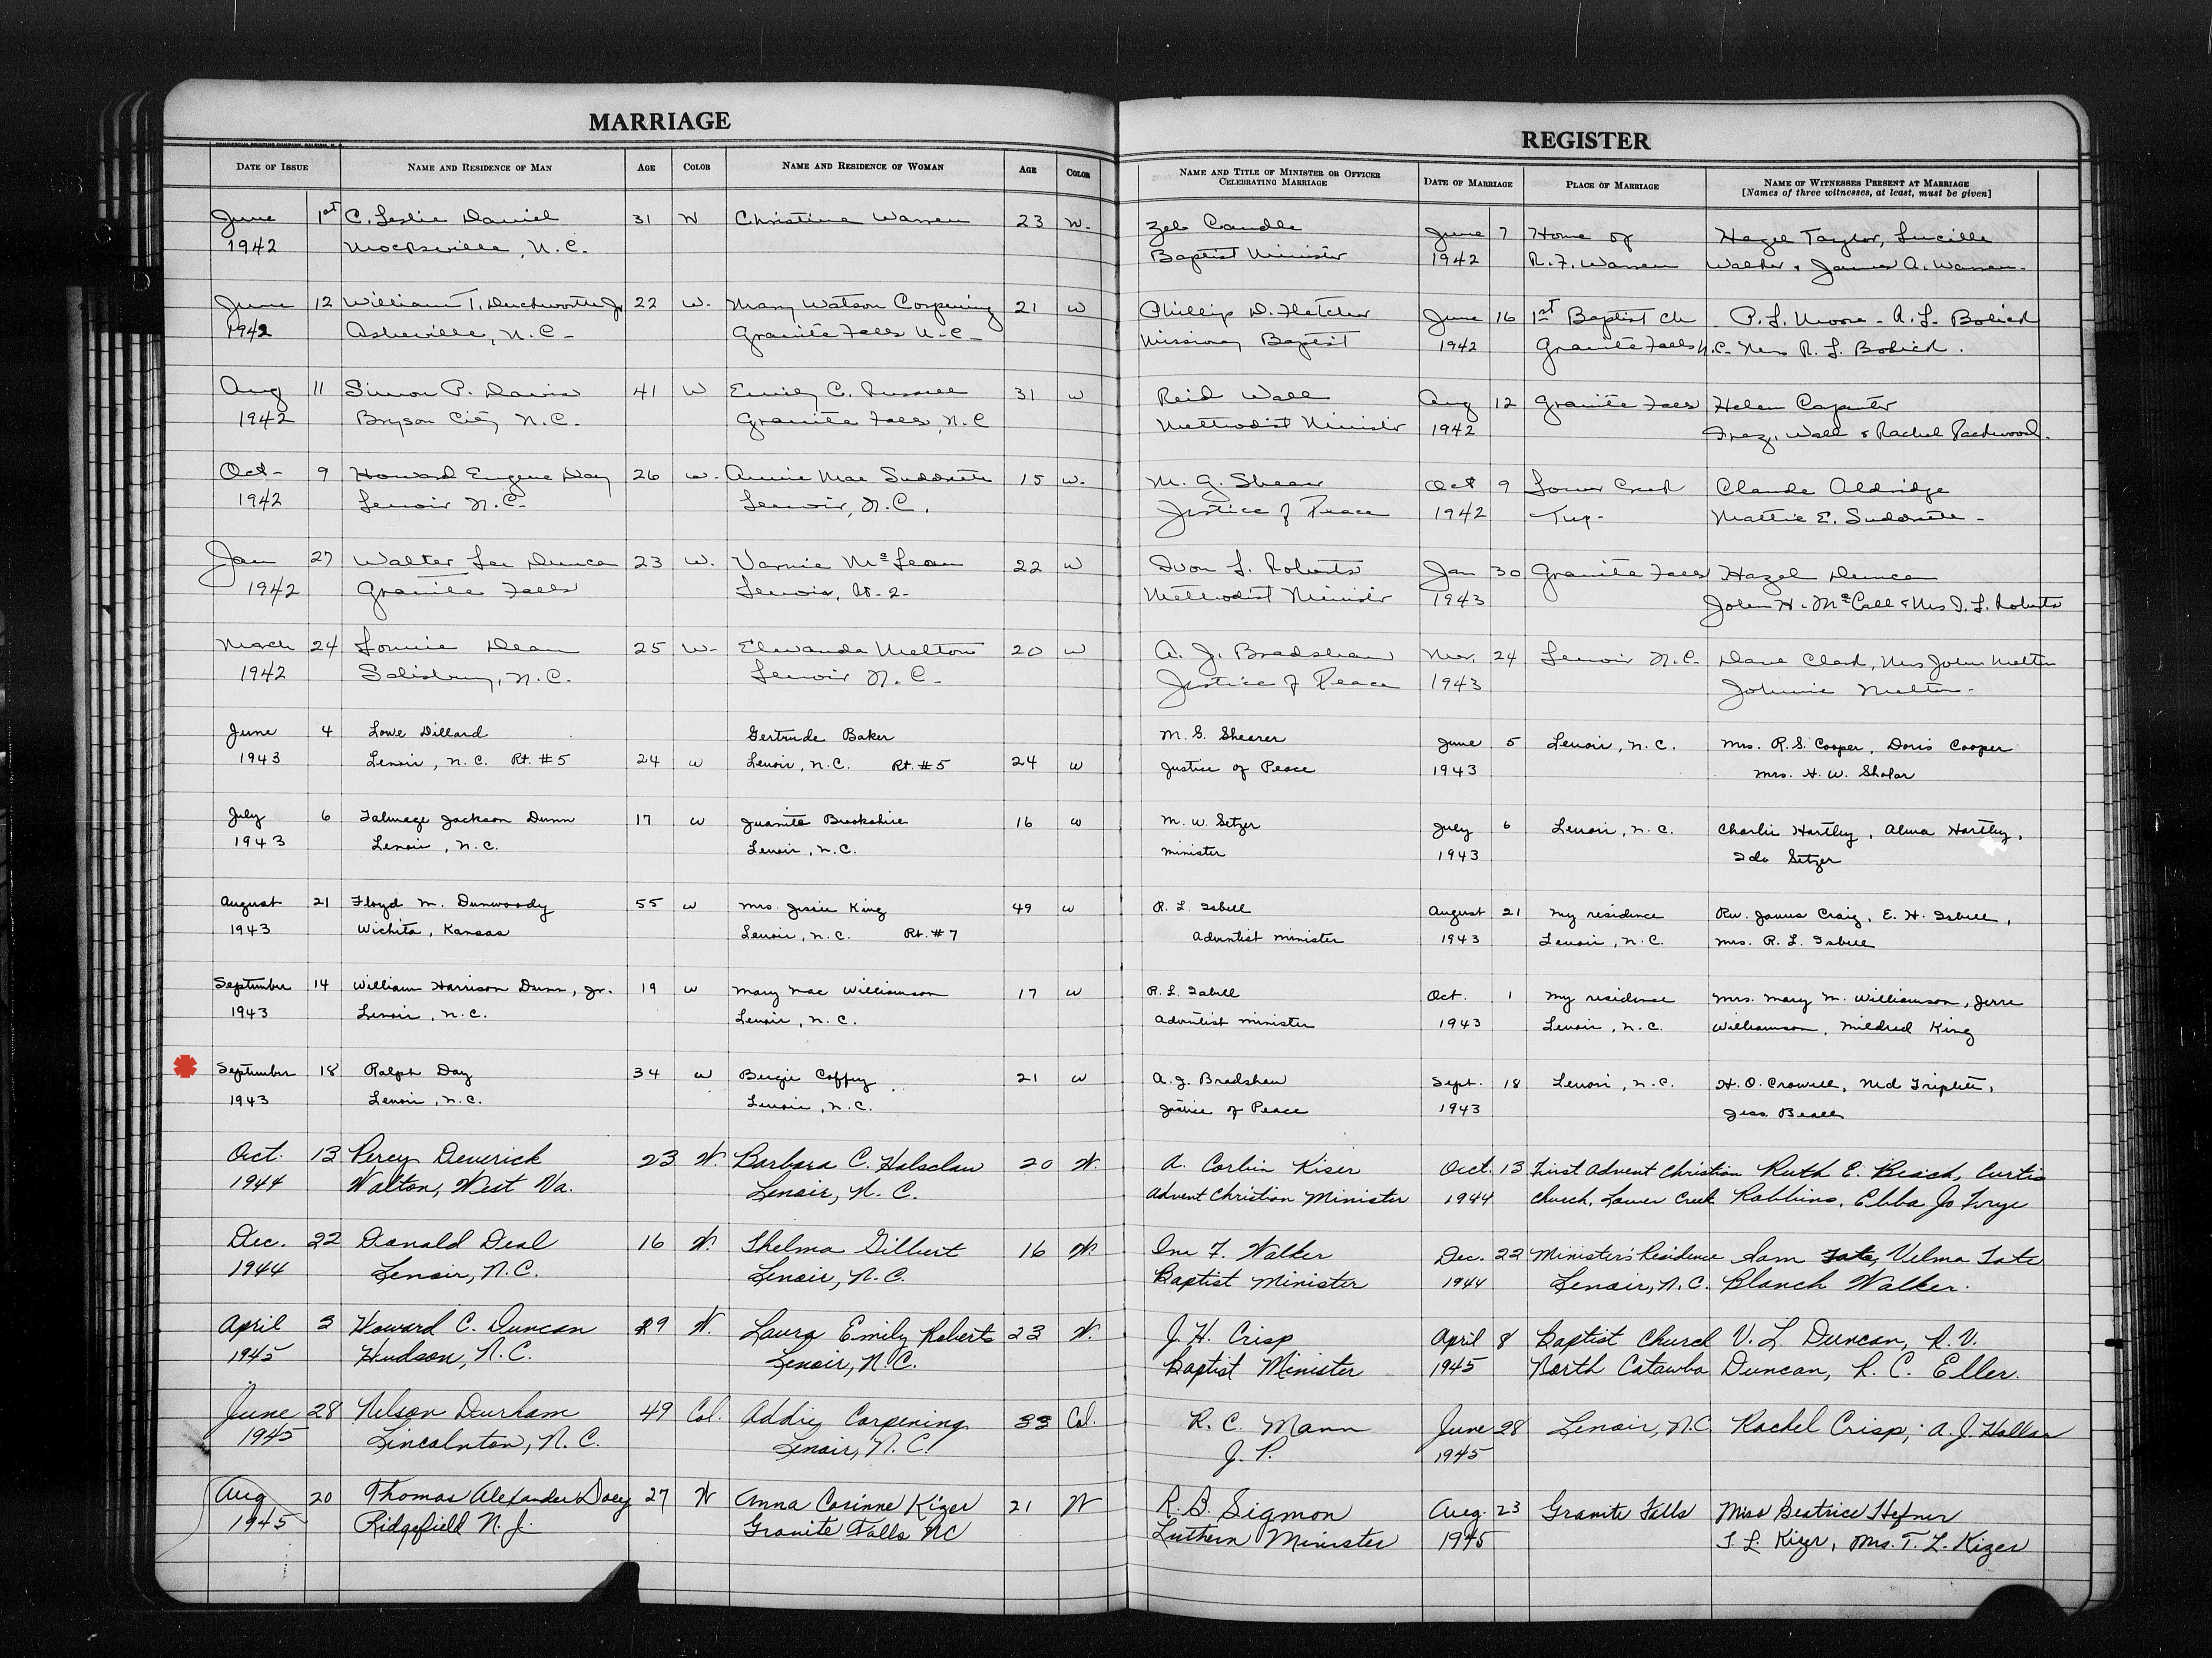 MARRIAGE
REGISTER
DATE OF ISSUE NAME AND RESIDENCE OF MAN AGE COLOR NAME AND RESIDENCE OF WOMAN AGE COLOR NAME AND TITLE OF MINISTER OR OFFICER CELEBRATING MARRIAGE DATE OF MARRIAGE PLACE OF MARRIAGE NAME OF WITNESSES PRESENT AT MARRIAGE
[Names of three witnesses, at least, must be given]
June 1st C. Leslie Daniel 31 W Christine Warren 23 W. Zeb Caudle June 7 Home of Hazel Taylor, Lucille
1942 Mocksville, N.C. Baptist Minister 1942 R.F. Warren Walker & James A. Warren.
June 12 William T. Duckworth Jr 22 W. Mary Watson Corpening 21 W Phillip D. Fletcher June 16 1st Baptist Ch P.L. Moore - A.L. Bolick
1942 Asheville, N.C. Granite Falls N.C. Missionary Baptist 1942 Granite Falls N.C. Mrs R.L. Bolick.
Aug 11 Simon P. Davis 41 W Emily C. Russell 31 W Reid Wall Aug 12 Granite Falls Helen Carpenter
1942 Bryson City N.C. Granite Falls, N.C Methodist Minister 1942 Wall & Rachel
Oct- 9 Howard Eugene Day 26 W. Annie Mae Suddreth 15 W. M. G. Shearer Oct 9 Lower Creek Claude Aldridge
1942 Lenoir N.C. Lenoir, N.C. Justice of Peace 1942 Twp- Mattie E. Suddreth -
Jan 27 Walter Lee Duncan 23 W. Varnie McLean 22 W Ivon L. Roberts Jan 30 Granite Falls Hazel Duncan
1942 Granite Falls Lenoir, R-2- Methodist Minister 1943 John H. McCall & Mrs I.L. Roberts
March 24 Lonnie Dean 25 W- Elwanda Melton 20 W A. J. Bradshaw Mar. 24 Lenoir N.C. Dave Clark, Mrs John Melton
1942 Salisbury, N.C. Lenoir N.C- Justice of Peace 1943 Johnnie Melton-
June 4 Lowe Dillard Gertrude Baker M. G. Shearer June 5 Lenoir, N.C. Mrs. R.S. Cooper, Doris Cooper
1943 Lenoir, N.C. Rt. #5 24 W Lenoir, N.C. Rt. #5 24 W Justice of Peace 1943 Mrs. H.W. Sholar
July 6 Talmage Jackson Dunn 17 W Juanita Brookshire 16 W M. W. Setzer July 6 Lenoir, N.C. Charlie Hartley, Alma Hartley,
1943 Lenoir, N.C. Lenoir, N.C. Minister 1943 Ida Setzer
August 21 Floyd M. Dunwoody 55 W Mrs. Jessie King 49 W R. L. Isbell August 21 My residence Rev. James Craig, E. H. Isbell,
1943 Wichita, Kansas Lenoir, N.C. Rt. #7 Adventist Minister 1943 Lenoir, N.C. Mrs. R. L. Isbell
September 14 William Harrison Dunn, Jr. 19 W Mary Mae Williamson 17 W R. L. Isbell Oct. 1 My residence Mrs. Mary M. Williamson, Jerre
1943 Lenoir, N.C. Lenoir, N.C. Adventist Minister 1943 Lenoir, N.C. Williamson, Mildred King
September 18 Ralph Day 34 W Bergie Coffey 21 W A. J. Bradshaw Sept. 18 Lenoir, N.C. H. O. Crowell, Ned Triplett,
1943 Lenoir, N.C. Lenoir, N.C. Justice of Peace 1943 Jess Beall
Oct. 13 Percy Deverick 23 W. Barbara C. Halsclaw 20 W. A. Corbin Kiser Oct. 13 First Advent Christian Ruth E. Beach, Curtis
1944 Walton, West Va. Lenoir, N.C. Advent Christian Minister 1944 Church, Lower Creek Robbins, Ebba Jo Frye
Dec. 22 Donald Deal 16 W. Thelma Gilbert 16 W. Ira F. Walker Dec. 22 Minister's Residence Sam Tate, Velma Tate
1944 Lenoir, N.C. Lenoir, N.C. Baptist Minister 1944 Lenoir, N.C. Blanch Walker.
April 3 Howard C. Duncan 29 W. Laura Emily Roberts 23 W. J. H. Crisp April 8 Baptist Church V. L. Duncan, R. V.
1945 Hudson, N.C. Lenoir, N.C. Baptist Minister 1945 North Catawba Duncan, R. C. Eller.
June 28 Nelson Durham 49 Col. Addie Corpening 33 Col. R. C. Mann June 28 Lenoir, N.C Rachel Crisp, A. J. Hollar
1945 Lincolnton, N.C. Lenoir, N.C. J. P. 1945
Aug 20 Thomas Alexander Doey 27 W Anna Corinne Kizer 21 W R. B. Sigmon Aug. 23 Granite Falls Miss Beatrice Hefner
1945 Ridgefield N.J. Granite Falls NC Luthern Minister 1945 T. L. Kizer, Mrs. T. L. Kizer